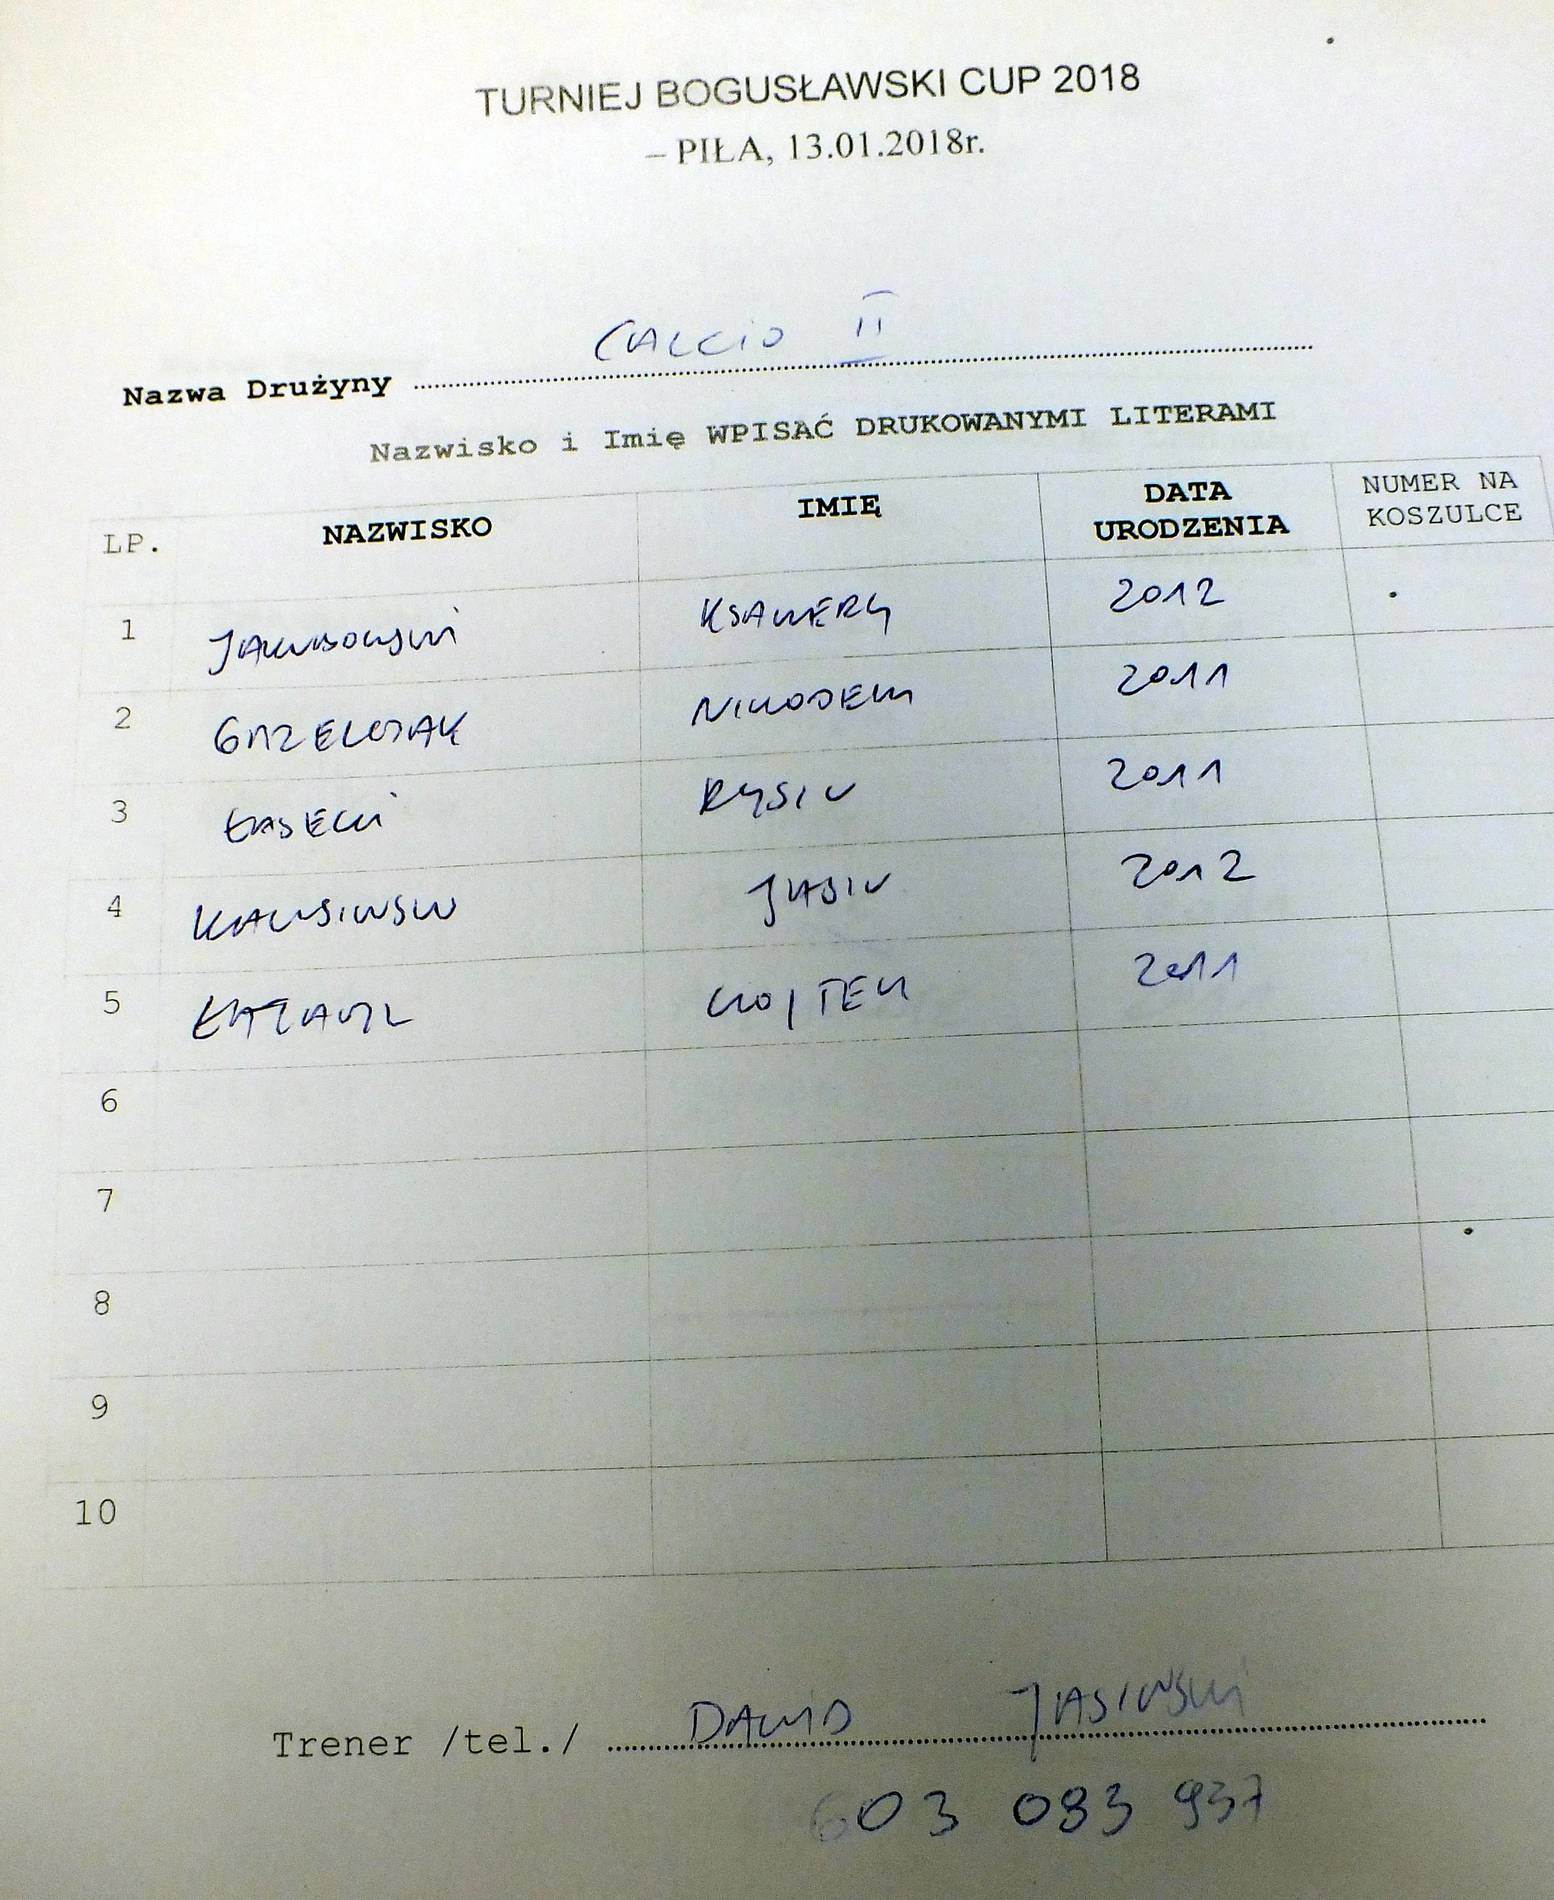 TURNIEJ BOGUSŁAWSKI CUP 2018
– PIŁA, 13.01.2018r.
Nazwa Drużyny CALCIO II
Nazwisko i Imię WPISAĆ DRUKOWANYMI LITERAMI
LP. NAZWISKO IMIĘ DATA URODZENIA NUMER NA KOSZULCE
1 JAKUBOWSKI KSAWERY 2012
2 GRZELCZAK NIKODEM 2011
3 ŁASECKI RYSIU 2011
4 JASIU 2012
5 WOJTEK 2011
6
7
8
9
10
Trener /tel./ DAWID JASIŃSKI
603 083 937